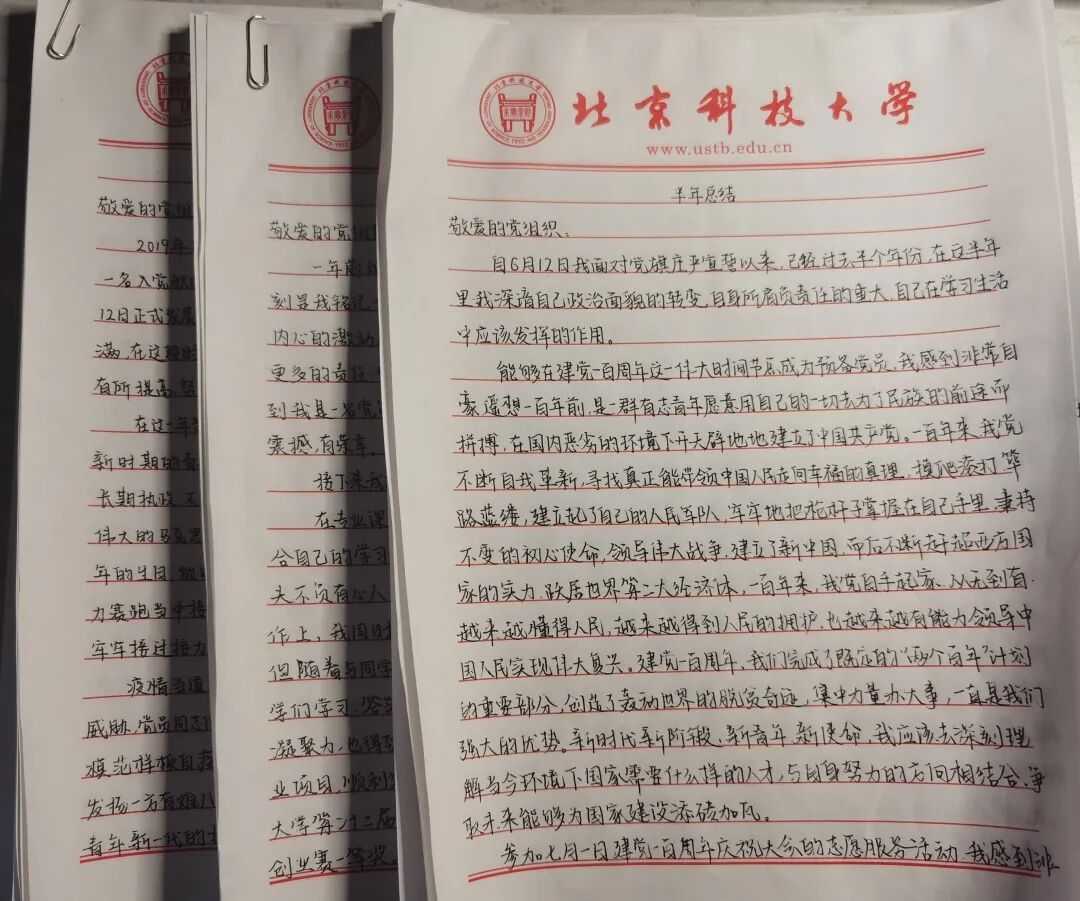 敬爱的党组
2019年
一名入党积
12日正式发展
满,在这段时
有所提高,努
在这一年
新时期的
长期执政,不
伟大的马克思
年的生日,能
力赛跑当中接
牢牢接过接力
疫情当道
威胁,党员同志们
模范样板自疫
发扬一方有难八
青年新一代的
敬爱的党组织
一年前我
刻是我铭记一
内心的激动,
更多的责任,
到我是一名党
震撼,有荣幸。
接下来我
在专业课
合自己的学习
夫不负有心人
作上,我同时
但随着与同学
学们学习、答
凝聚力,也得到
业项目,顺利
大学第二十二届
创业赛一等奖。
北京科技大学
www.ustb.edu.cn
半年总结
敬爱的党组织:
自6月12日我面对党旗庄严宣誓以来,已经过去半个年份,在这半年
里我深谙自己政治面貌的转变,自身所肩负责任的重大,自己在学习生活
中应该发挥的作用。
能够在建党一百周年这一伟大时间节点成为预备党员,我感到非常自
豪,遥想一百年前,是一群有志青年愿意用自己的一切去为了民族的前途而
拼搏,在国内恶劣的环境下开天辟地地建立了中国共产党。一百年来,我党
不断自我革新,寻找真正能带领中国人民走向幸福的真理,摸爬滚打,筚
路蓝缕,建立起了自己的人民军队,牢牢地把枪杆子掌握在自己手里,秉持
不变的初心使命,领导伟大战争,建立了新中国,而后不断赶超西方国
家的实力,跃居世界第二大经济体,一百年来,我党白手起家,从无到有,
越来越懂得人民,越来越得到人民的拥护,也越来越有能力领导中
国人民实现伟大复兴。建党一百周年,我们完成了既定的“两个百年”计划
的重要部分,创造了轰动世界的脱贫奇迹,集中力量办大事,一直是我们
强大的优势。新时代新阶段,新青年,新使命,我应该去深刻理
解当今环境下国家需要什么样的人才,与自身努力的方向相结合,争
取未来能够为国家建设添砖加瓦。
参加七月一日建党一百周年庆祝大会的志愿服务活动,我感到非